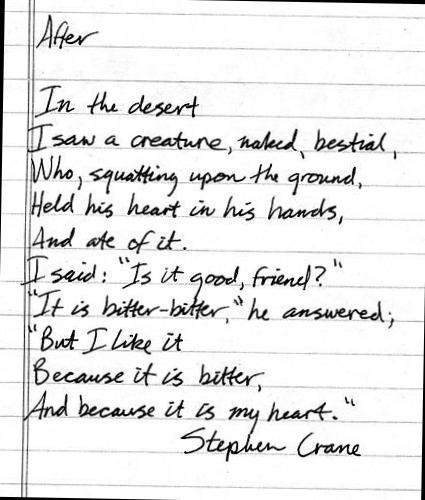 After
In the desert
I saw a creature, naked, bestial,
Who, squatting upon the ground,
Held his heart in his hands,
And ate of it.
I said: "Is it good, friend?"
"It is bitter-bitter," he answered;
"But I like it
Because it is bitter,
And because it is my heart."
Stephen Crane